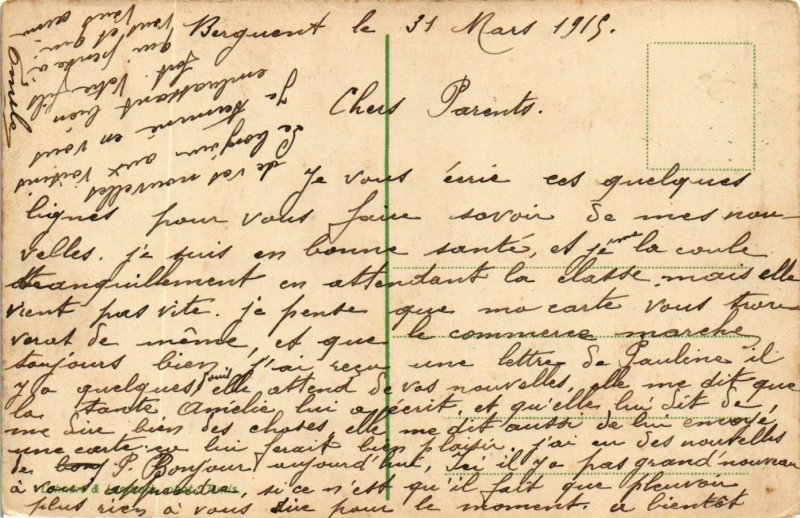 Berguent le 31 Mars 1915.
Chers Parents.
Je vous écrie ces quelques
lignes pour vous faire savoir de mes nou-
velles. je suis en bonne santé, et je me la coule
tranquillement en attendant la classe. mais elle
vient pas vite. je pense que ma carte vous trou
verat de même, et que le commerce marche
toujours bien, j'ai reçu une lettre de Pauline il
y a quelques jours, elle attend de vos nouvelles, elle me dit que
la tante Amelie lui a écrit, et qu'elle lui dit de
me dire bien des choses, elle me dit aussi de lui envoyé
une carte ça lui ferait bien plaisir, j'ai eu des nouvelles
de P. Bonjour aujourd'hui, Ici il y a pas grand nouveau
à vous apprendre, si ce n'est qu'il fait que pleuvoir
plus rien à vous dire pour le moment. a bientôt
de vos nouvelles
le bonjour aux voisins
Je termine en vous
embrassant bien
fort. Votre fils
qui pense à
vous et qui
vous aime